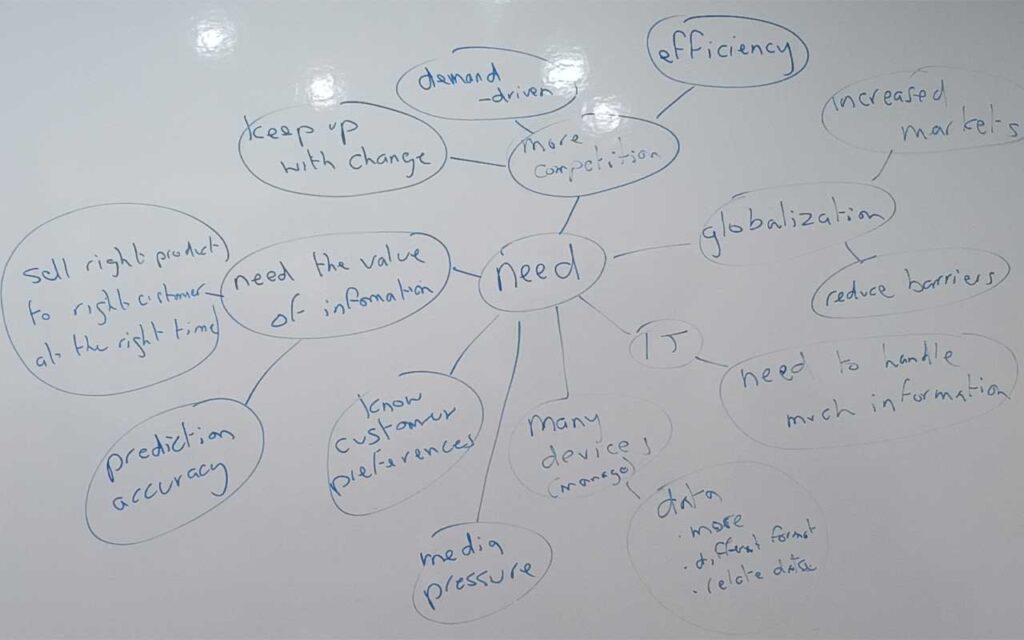 efficiency
demand
-driven
increased
markets
keep up
with change
more
competition
globalization
sell right product
to right customer
at the right time
need the value
of infomation
need
reduce barriers
IT
need to handle
much information
know
customer
preferences
many
devices
(manage)
prediction
accuracy
data
. more
. different format
. relate data
media
pressure